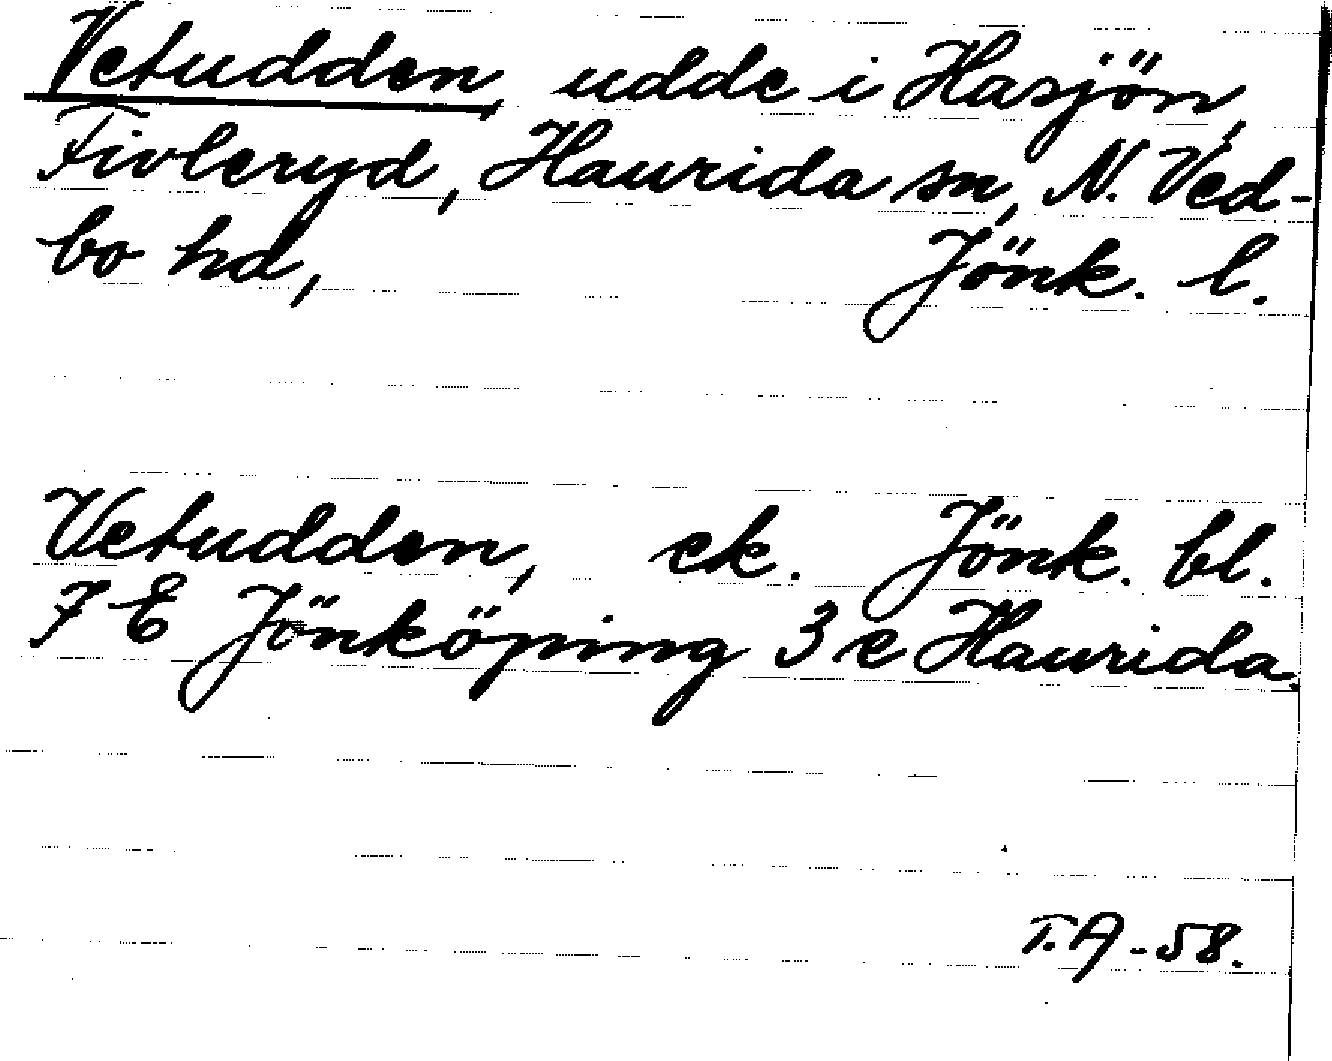 Vetudden, udde i Hasjön,
Fivleryd, Haurida sn, N. Ved-
bo hd, Jönk. l.
Vetudden, ek. Jönk. bl.
7 E Jönköping 3 e Haurida.
T.A-58.